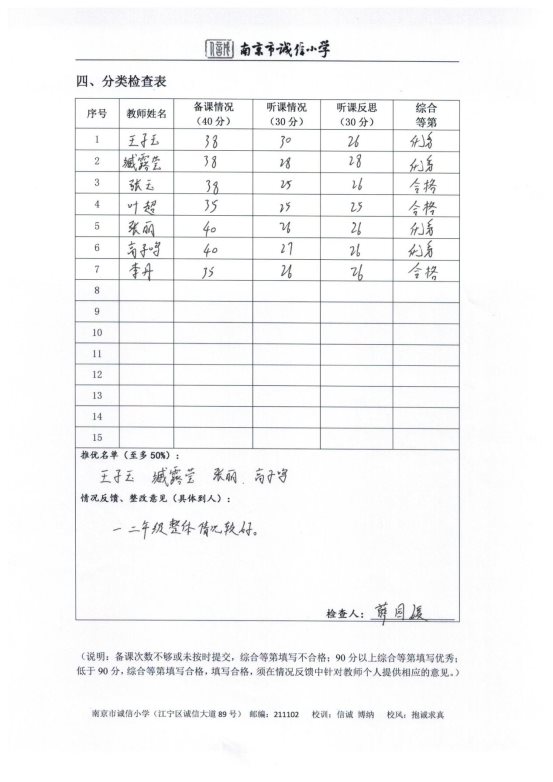 南京市诚信小学
四、分类检查表
序号 教师姓名 备课情况（40分） 听课情况（30分） 听课反思（30分） 综合等第
1 王子玉 38 30 26 优秀
2 臧露莹 38 28 28 优秀
3 张玉 38 25 26 合格
4 叶超 35 25 25 合格
5 张丽 40 26 26 优秀
6 40 27 26 优秀
7 李丹 35 26 26 合格
8
9
10
11
12
13
14
15
推优名单（至多50%）：
王子玉 臧露莹 张丽
情况反馈、整改意见（具体到人）：
一二年级整体情况较好。
检查人：
（说明：备课次数不够或未按时提交，综合等第填写不合格；90分以上综合等第填写优秀；
低于90分，综合等第填写合格，填写合格，须在情况反馈中针对教师个人提供相应的意见。）
南京市诚信小学（江宁区诚信大道89号） 邮编：211102 校训：信诚 博纳 校风：抱诚求真